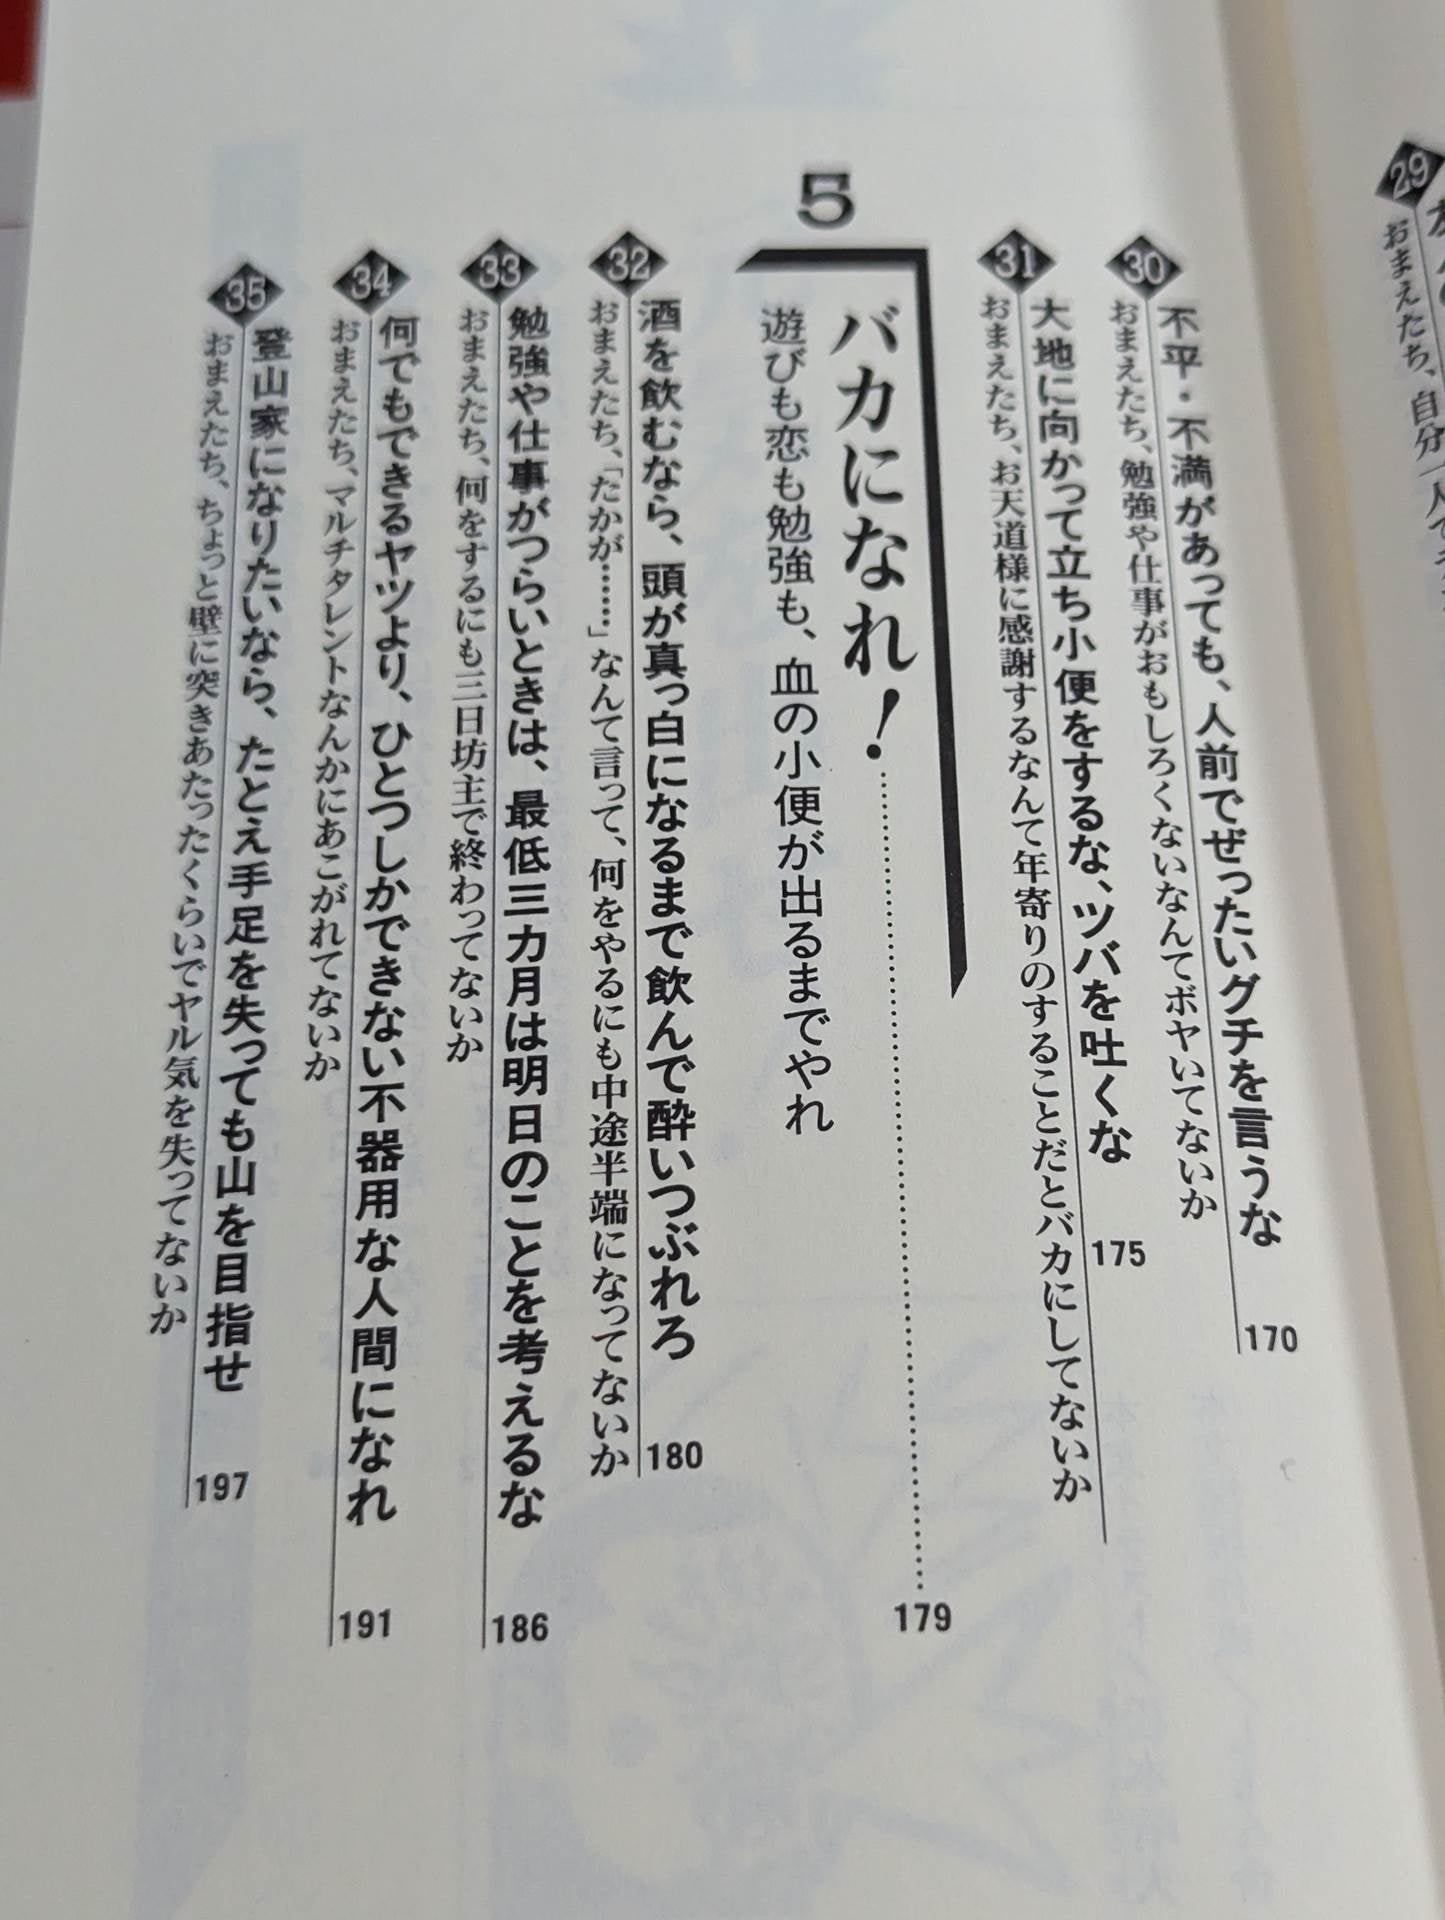 29
おまえたち、自分一人で
30
不平・不満があっても、人前でぜったいグチを言うな
170
おまえたち、勉強や仕事がおもしろくないなんてボヤいてないか
31
大地に向かって立ち小便をするな、ツバを吐くな
175
おまえたち、お天道様に感謝するなんて年寄りのすることだとバカにしてないか
5
バカになれ!
179
遊びも恋も勉強も、血の小便が出るまでやれ
32
酒を飲むなら、頭が真っ白になるまで飲んで酔いつぶれろ
180
おまえたち、「たかが……」なんて言って、何をやるにも中途半端になってないか
33
勉強や仕事がつらいときは、最低三カ月は明日のことを考えるな
186
おまえたち、何をするにも三日坊主で終わってないか
34
何でもできるヤツより、ひとつしかできない不器用な人間になれ
191
おまえたち、マルチタレントなんかにあこがれてないか
35
登山家になりたいなら、たとえ手足を失っても山を目指せ
197
おまえたち、ちょっと壁に突きあたったくらいでヤル気を失ってないか